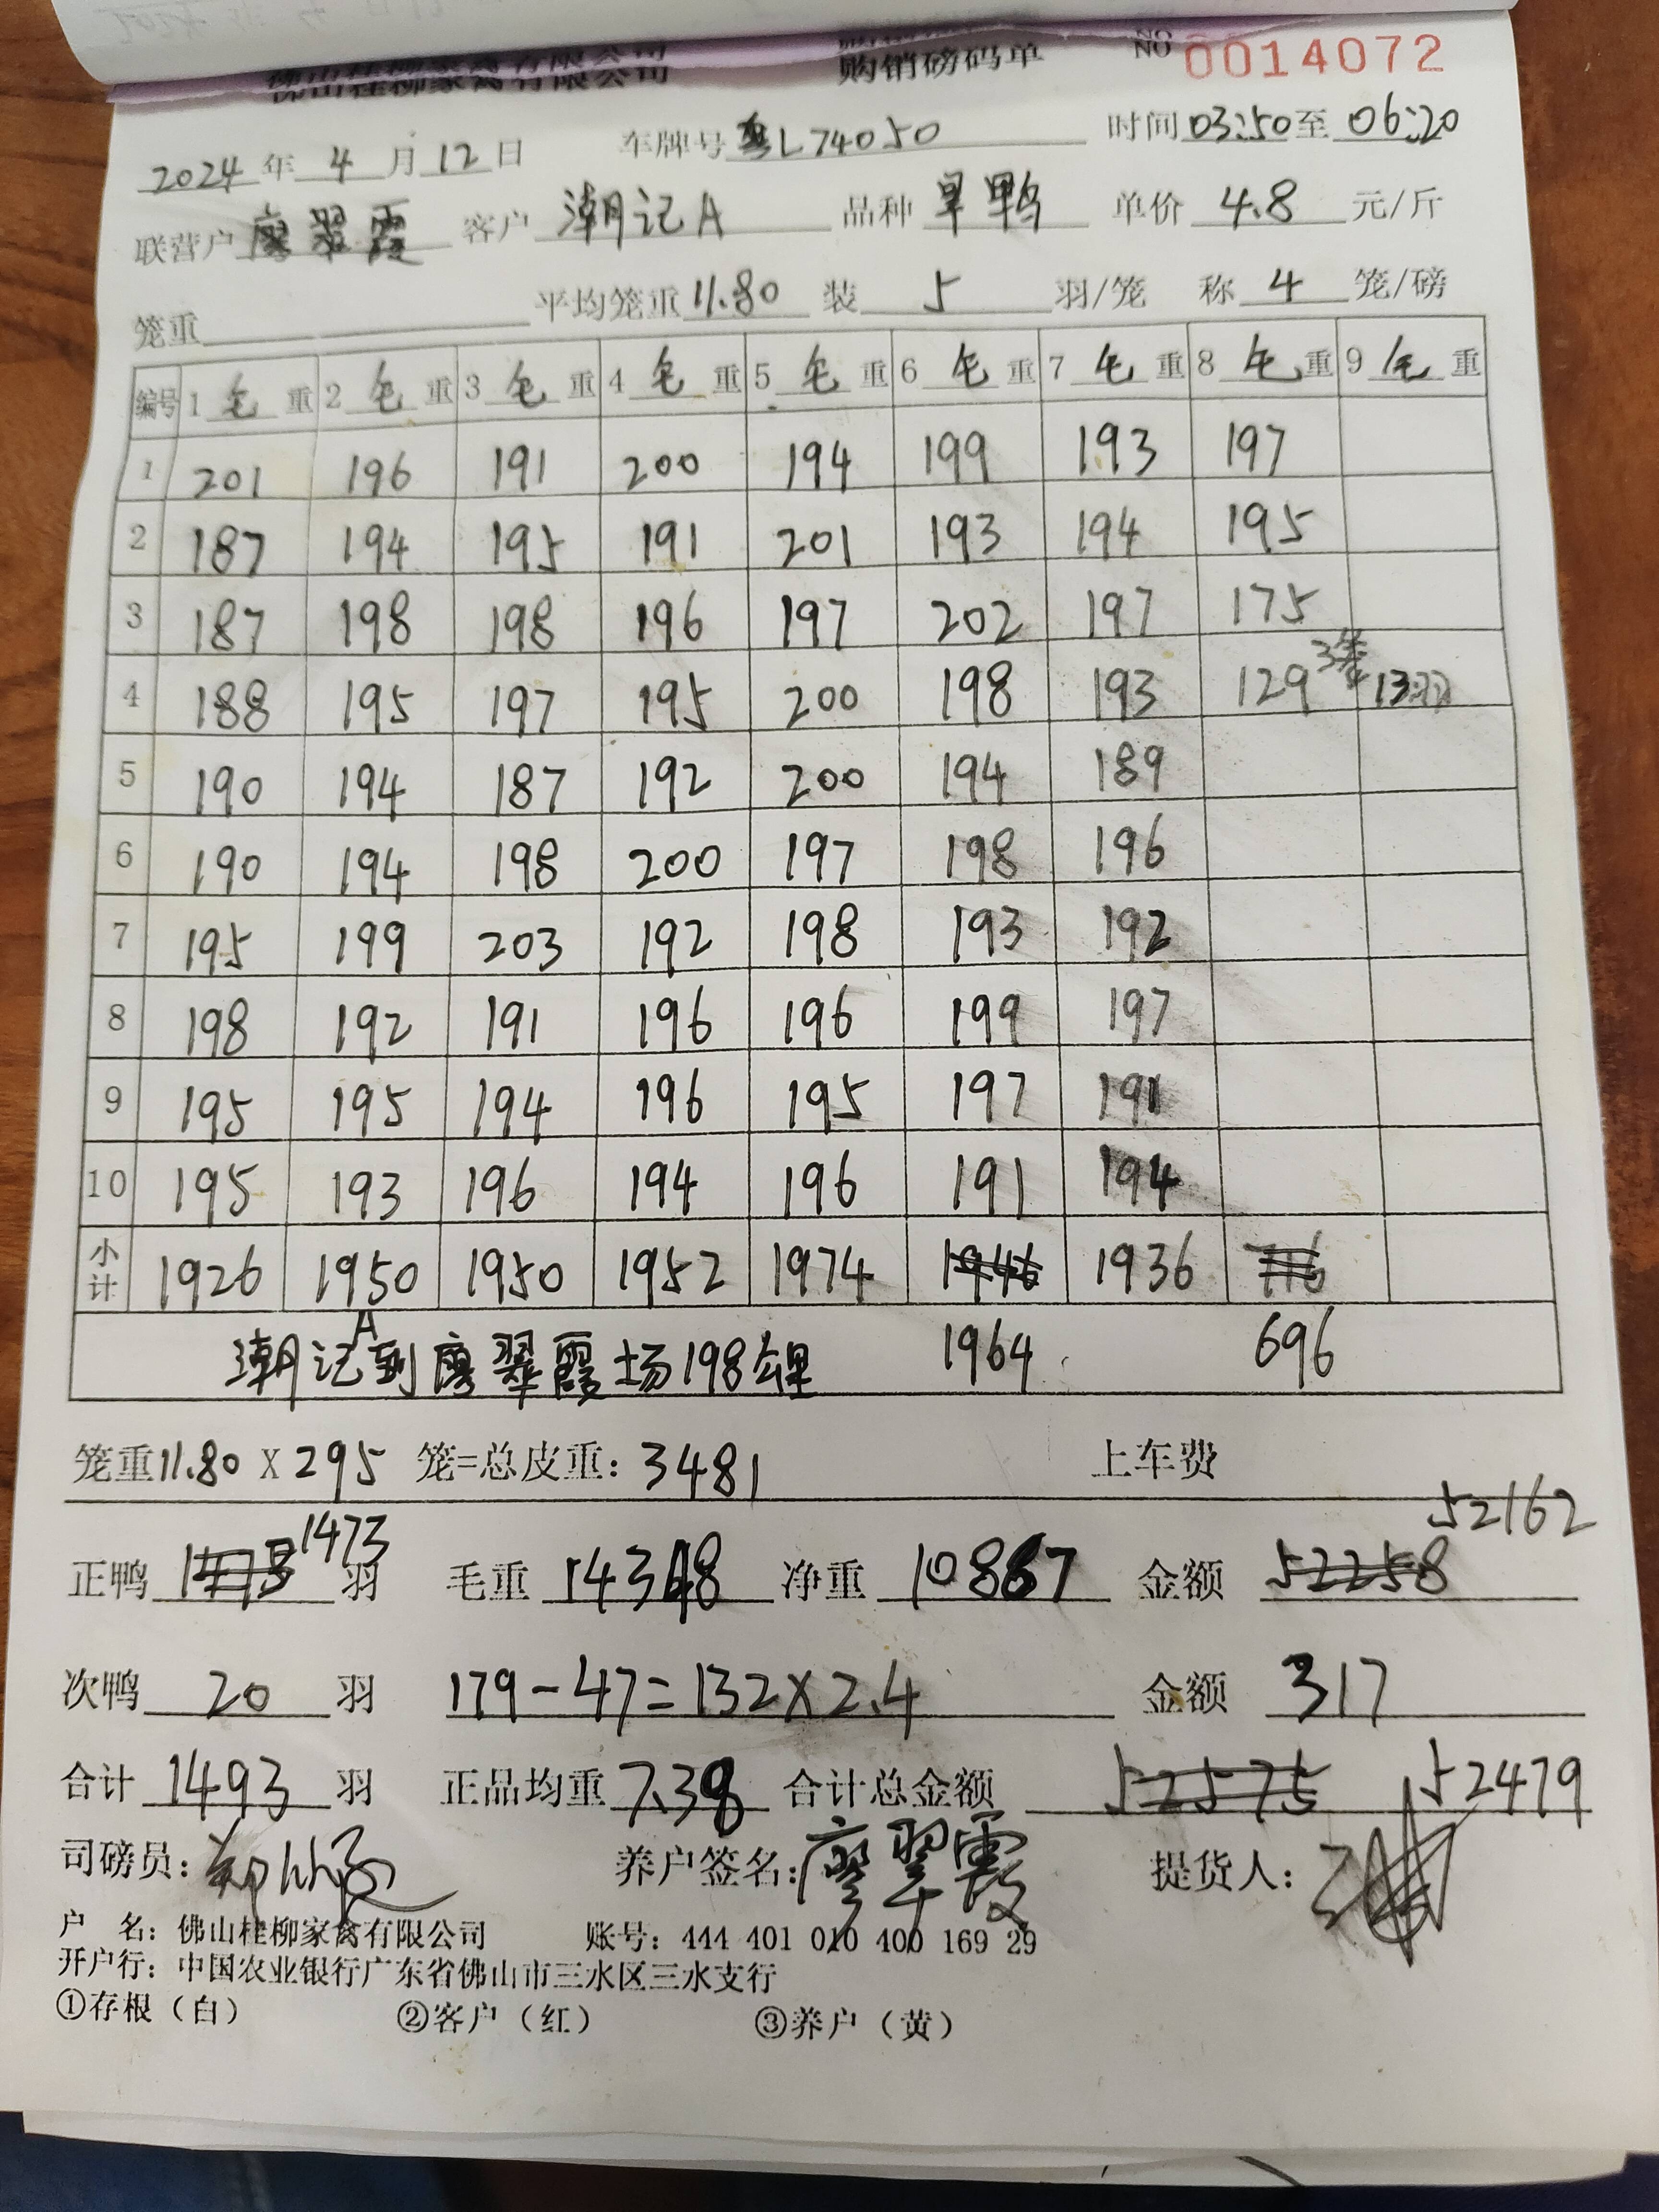 佛山桂柳家禽有限公司 购销磅码单 NO 0014072
2024年 4月12日 车牌号 粤L74050 时间 03:50至 06:20
联营户 廖翠霞 客户 潮记A 品种 旱鸭 单价 4.8 元/斤
笼重 平均笼重 11.80 装 5 羽/笼 称 4 笼/磅
编号 1 毛 重 2 毛 重 3 毛 重 4 毛 重 5 毛 重 6 毛 重 7 毛 重 8 毛 重 9 毛 重
1 201 196 191 200 194 199 193 197
2 187 194 195 191 201 193 194 195
3 187 198 198 196 197 202 197 175
4 188 195 197 195 200 198 193 129 3笼 13羽
5 190 194 187 192 200 194 189
6 190 194 198 200 197 198 196
7 195 199 203 192 198 193 192
8 198 192 191 196 196 199 197
9 195 195 194 196 195 197 191
10 195 193 196 194 196 191 194
小计 1926 1950 1950 1952 1974 1946 1936 716
潮记A到廖翠霞场198公里 1964 696
笼重11.80 X 295 笼=总皮重: 3481 上车费
52162
正鸭 1473 羽 毛重 14348 净重 10867 金额 52258
次鸭 20 羽 179-47=132×2.4 金额 317
合计 1493 羽 正品均重 7.38 合计总金额 52575 52479
司磅员: 养户签名: 廖翠霞 提货人:
户 名: 佛山桂柳家禽有限公司 账号: 444 401 010 400 169 29
开户行: 中国农业银行广东省佛山市三水区三水支行
①存根（白） ②客户（红） ③养户（黄）